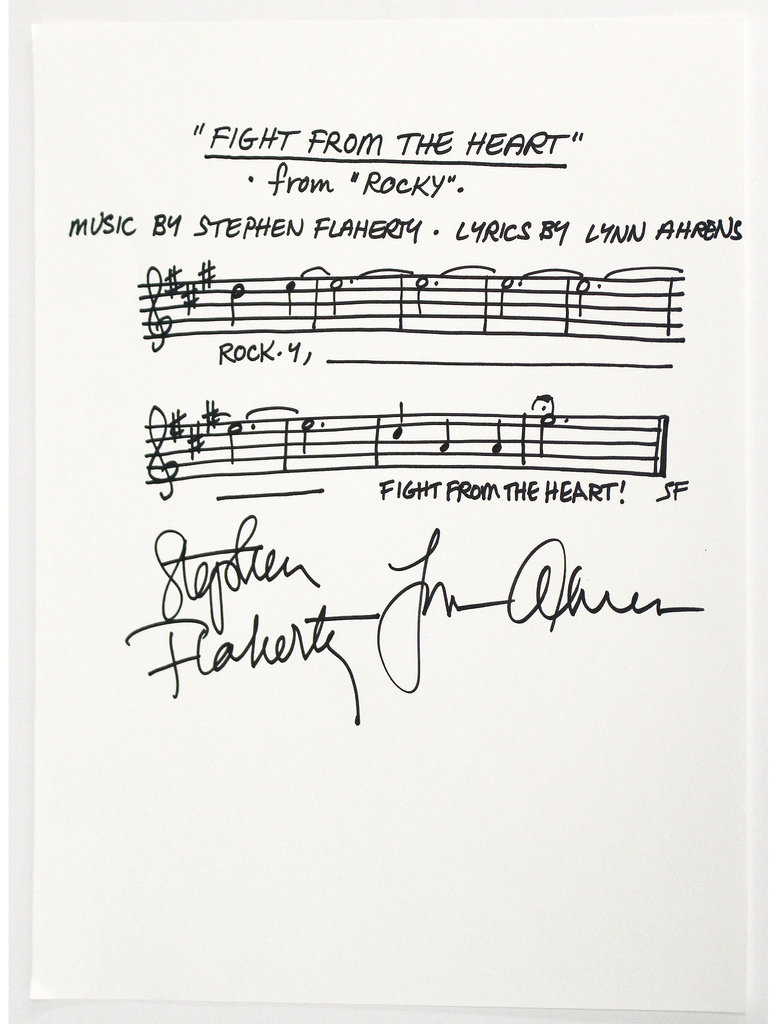 "FIGHT FROM THE HEART"
· from "ROCKY".
MUSIC BY STEPHEN FLAHERTY · LYRICS BY LYNN AHRENS
ROCK·Y,
FIGHT FROM THE HEART! SF
Stephen
Flaherty
Lynn Ahrens